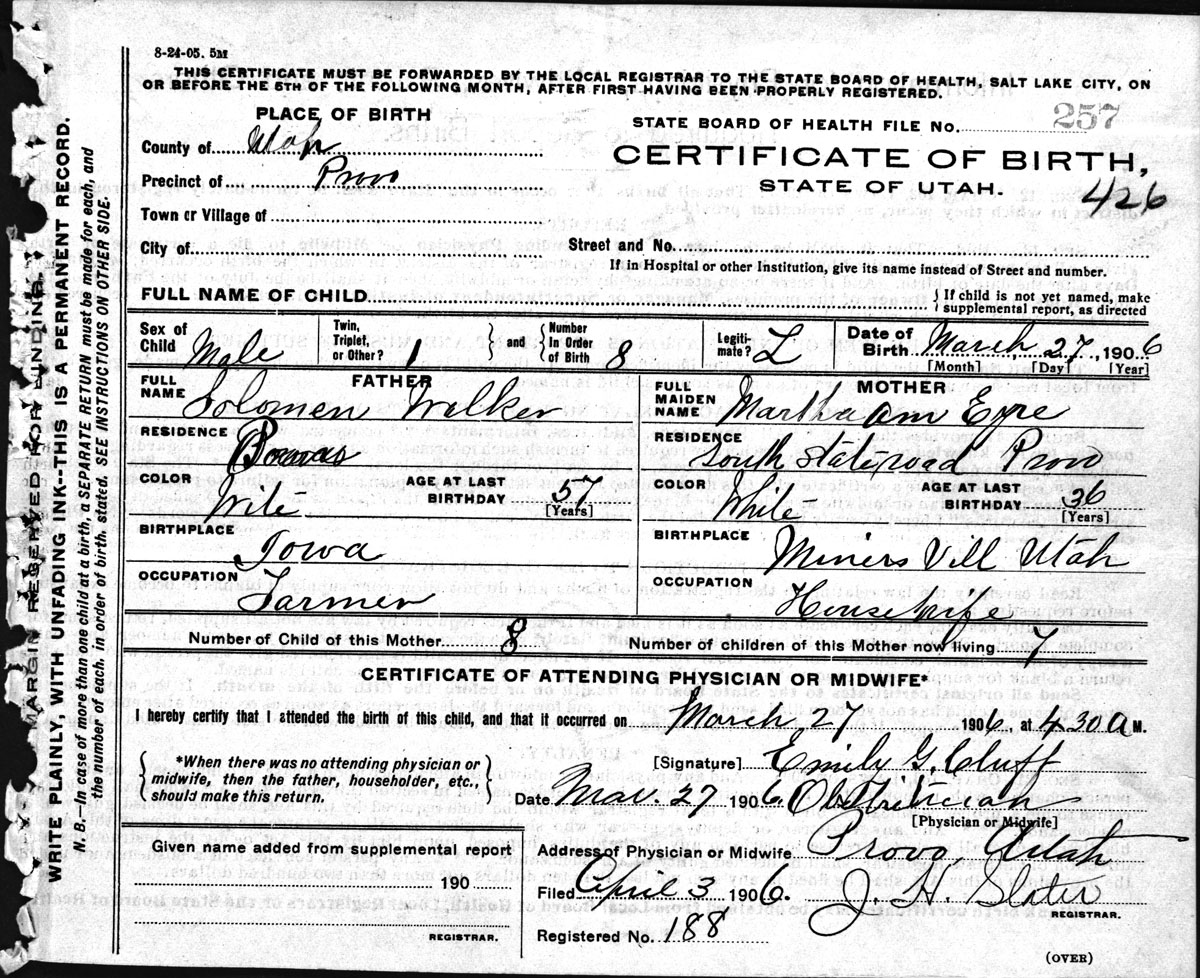 8-24-05. 5M
THIS CERTIFICATE MUST BE FORWARDED BY THE LOCAL REGISTRAR TO THE STATE BOARD OF HEALTH, SALT LAKE CITY, ON
OR BEFORE THE 5TH OF THE FOLLOWING MONTH, AFTER FIRST HAVING BEEN PROPERLY REGISTERED.
PLACE OF BIRTH
STATE BOARD OF HEALTH FILE NO. 257
County of Utah
CERTIFICATE OF BIRTH,
Precinct of Provo
STATE OF UTAH.
426
Town or Village of
City of
Street and No.
If in Hospital or other Institution, give its name instead of Street and number.
FULL NAME OF CHILD
If child is not yet named, make
supplemental report, as directed
Sex of Child Male
Twin, Triplet, or Other? 1 and Number In Order of Birth 8
Legitimate? L
Date of Birth March 27, 1906
[Month] [Day] [Year]
FATHER
FULL NAME Solomen Walker
RESIDENCE
COLOR Wite
AGE AT LAST BIRTHDAY 57
[Years]
BIRTHPLACE Iowa
OCCUPATION Farmer
MOTHER
FULL MAIDEN NAME Martha Ann Eyre
RESIDENCE South State road Provo
COLOR White
AGE AT LAST BIRTHDAY 36
[Years]
BIRTHPLACE Miners Vill Utah
OCCUPATION House wife
Number of Child of this Mother 8
Number of children of this Mother now living 7
CERTIFICATE OF ATTENDING PHYSICIAN OR MIDWIFE*
I hereby certify that I attended the birth of this child, and that it occurred on March 27 1906, at 4.30 A M.
*When there was no attending physician or
midwife, then the father, householder, etc.,
should make this return.
[Signature] Emily G. Cluff
Date Mar. 27 1906. Obstetrician
[Physician or Midwife]
Given name added from supplemental report
190
REGISTRAR.
Address of Physician or Midwife Provo, Utah
Filed April 3 1906. J. H. Slater
REGISTRAR.
Registered No. 188
(OVER)
MARGIN RESERVED FOR BINDING.
WRITE PLAINLY, WITH UNFADING INK--THIS IS A PERMANENT RECORD.
N. B.—In case of more than one child at a birth, a SEPARATE RETURN must be made for each, and
the number of each, in order of birth, stated. SEE INSTRUCTIONS ON OTHER SIDE.